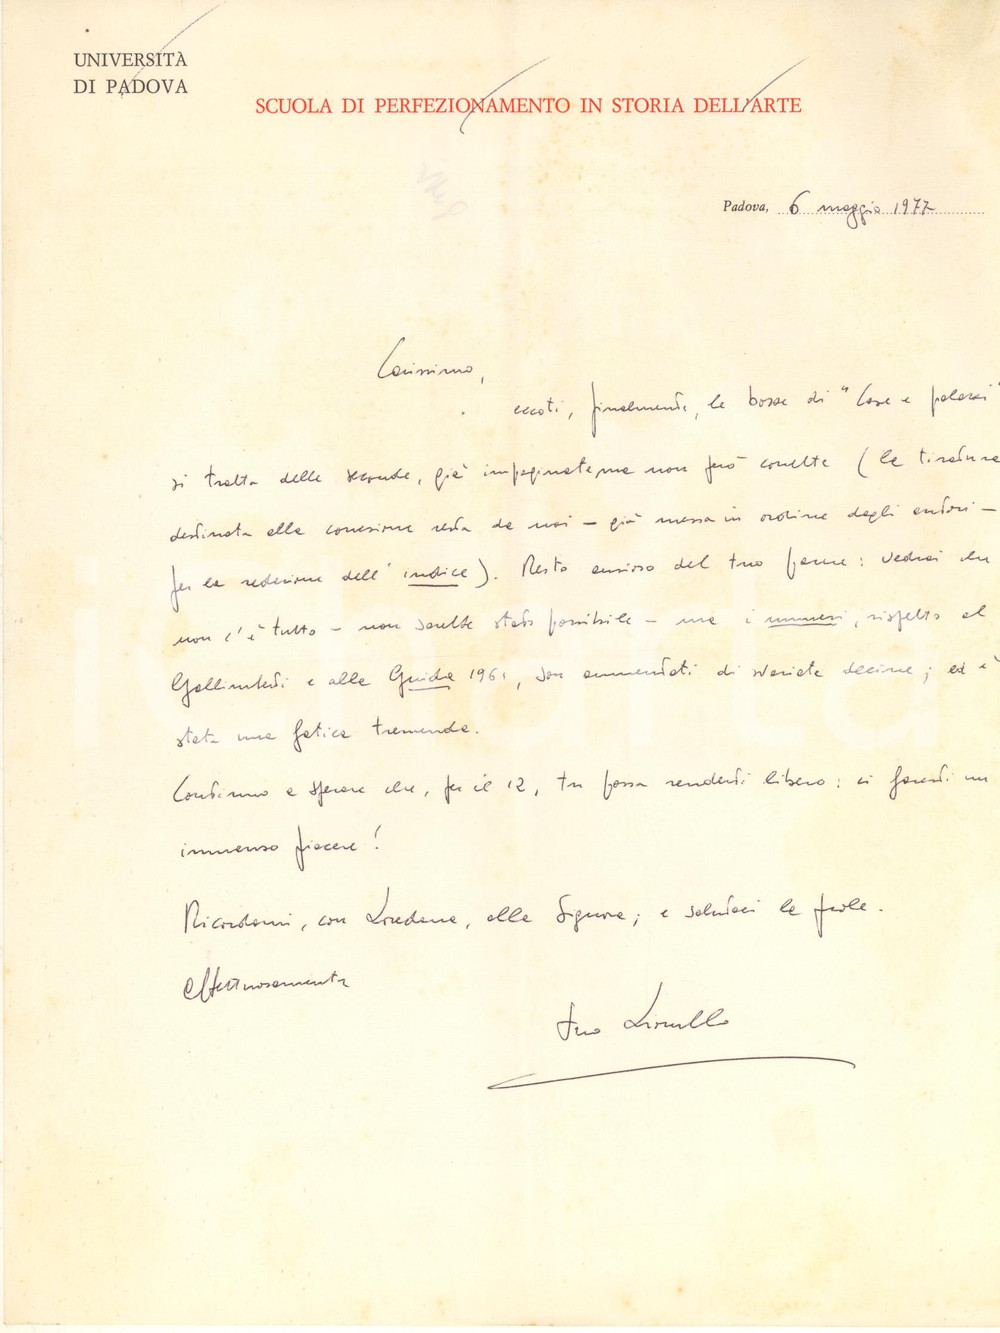 UNIVERSITÀ
DI PADOVA
SCUOLA DI PERFEZIONAMENTO IN STORIA DELL'ARTE
Padova, 6 maggio 1977
Carissimo,
eccoti, finalmente, le bozze di "Case e palazzi"
si tratta delle seconde, già impaginate, ma non però corrette (la tiratura
destinata alla correzione resta da noi - già messa in ordine dagli autori -
per la redazione dell'indice). Resto ansioso del tuo parere: vedrai che
non c'è tutto - non sarebbe stato possibile - ma i numeri, rispetto al
Gallimberti e alla Guida 1961, son aumentati di svariate decine; ed è
stata una fatica tremenda.
Continuo a sperare che, per il 12, tu possa renderti libero: ci faresti un
immenso piacere!
Ricordami, con Loredana, alla Signora; e salutaci la prole.
Affettuosamente
tuo Lionello